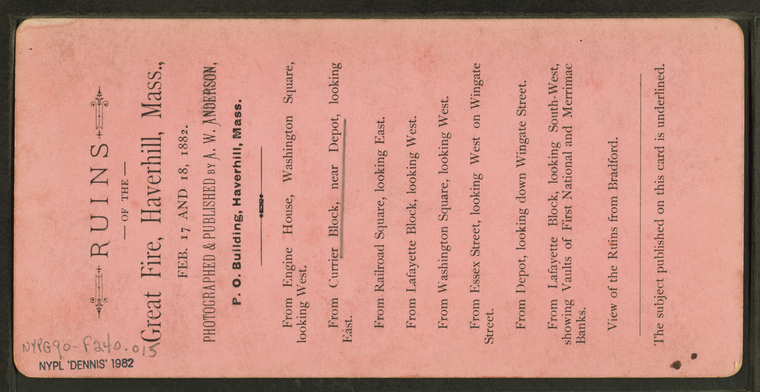 RUINS
— OF THE —
Great Fire, Haverhill, Mass.,
FEB. 17 AND 18, 1882.
PHOTOGRAPHED & PUBLISHED BY A. W. ANDERSON,
P. O. Building, Haverhill, Mass.
From Engine House, Washington Square,
looking West.
From Currier Block, near Depot, looking
East.
From Railroad Square, looking East.
From Lafayette Block, looking West.
From Washington Square, looking West.
From Essex Street, looking West on Wingate
Street.
From Depot, looking down Wingate Street.
From Lafayette Block, looking South-West,
showing Vaults of First National and Merrimac
Banks.
View of the Ruins from Bradford.
The subject published on this card is underlined.
NYPG90-F240.015
NYPL 'DENNIS' 1982